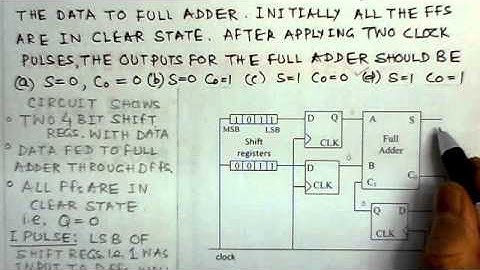 THE DATA TO FULL ADDER. INITIALLY ALL THE FFS
ARE IN CLEAR STATE. AFTER APPLYING TWO CLOCK
PULSES, THE OUTPUTS FOR THE FULL ADDER SHOULD BE
(a) S=0, C₀ = 0 (b) S=0 C₀=1 (c) S=1 C₀=0 (d) S=1 C₀=1
CIRCUIT SHOWS
° TWO 4 BIT SHIFT
REGS. WITH DATA
° DATA FED TO FULL
ADDER THROUGH DFFS.
° ALL FFS ARE IN
CLEAR STATE
i.e. Q=0
I PULSE: LSB OF
SHIFT REGS. i.e. 1 WAS
INPUT TO
1 0 1 1
MSB LSB
Shift
registers
0 0 1 1
D Q
CLK
D
CLK
A S
Full
Adder
B
Cᵢ C₀
Q D
CLK
clock